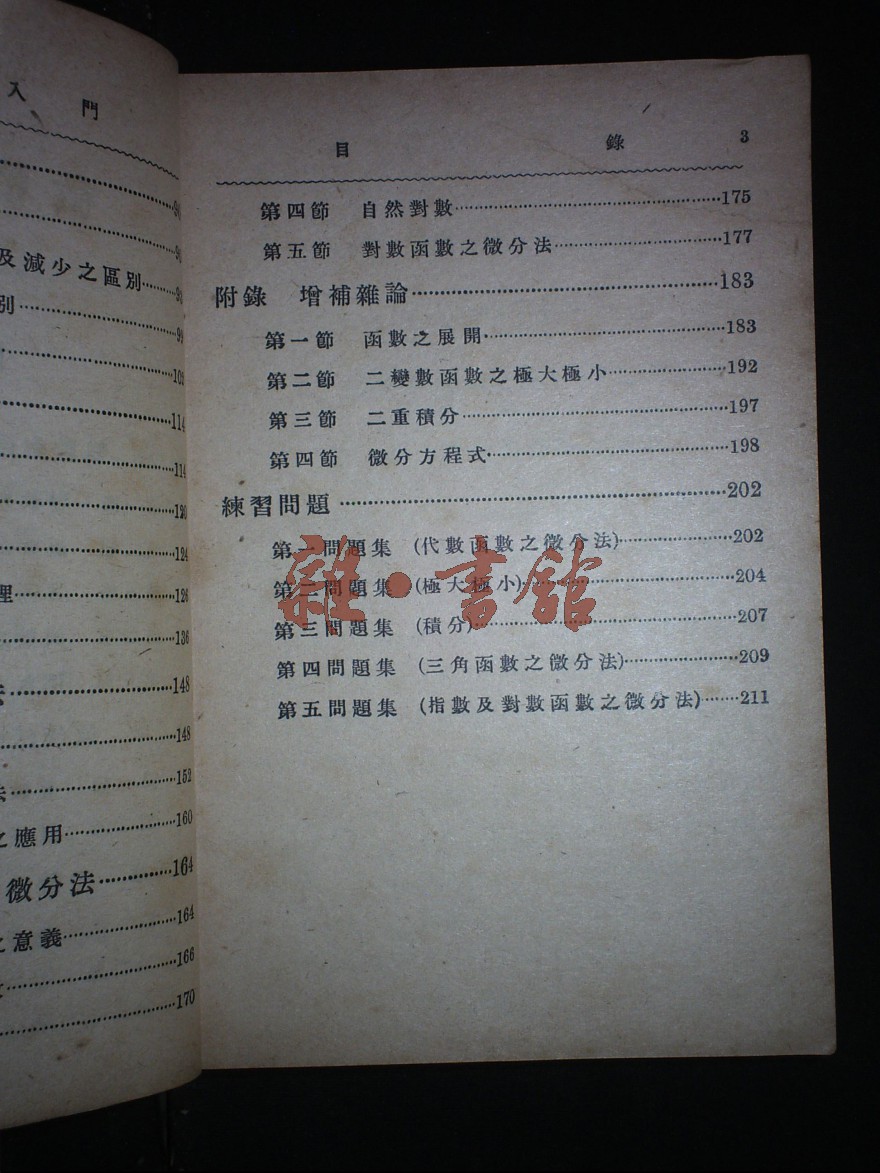 入 門
98
及減少之區別……98
別……99
109
114
114
120
124
理……126
136
法……148
148
法……152
之應用……160
微分法……164
之意義……164
166
170
目 錄 3
第四節 自然對數……175
第五節 對數函數之微分法……177
附錄 增補雜論……183
第一節 函數之展開……183
第二節 二變數函數之極大極小……192
第三節 二重積分……197
第四節 微分方程式……198
練習問題……202
第一問題集 (代數函數之微分法)……202
第二問題集 (極大極小)……204
第三問題集 (積分)……207
第四問題集 (三角函數之微分法)……209
第五問題集 (指數及對數函數之微分法)……211
雜·書館